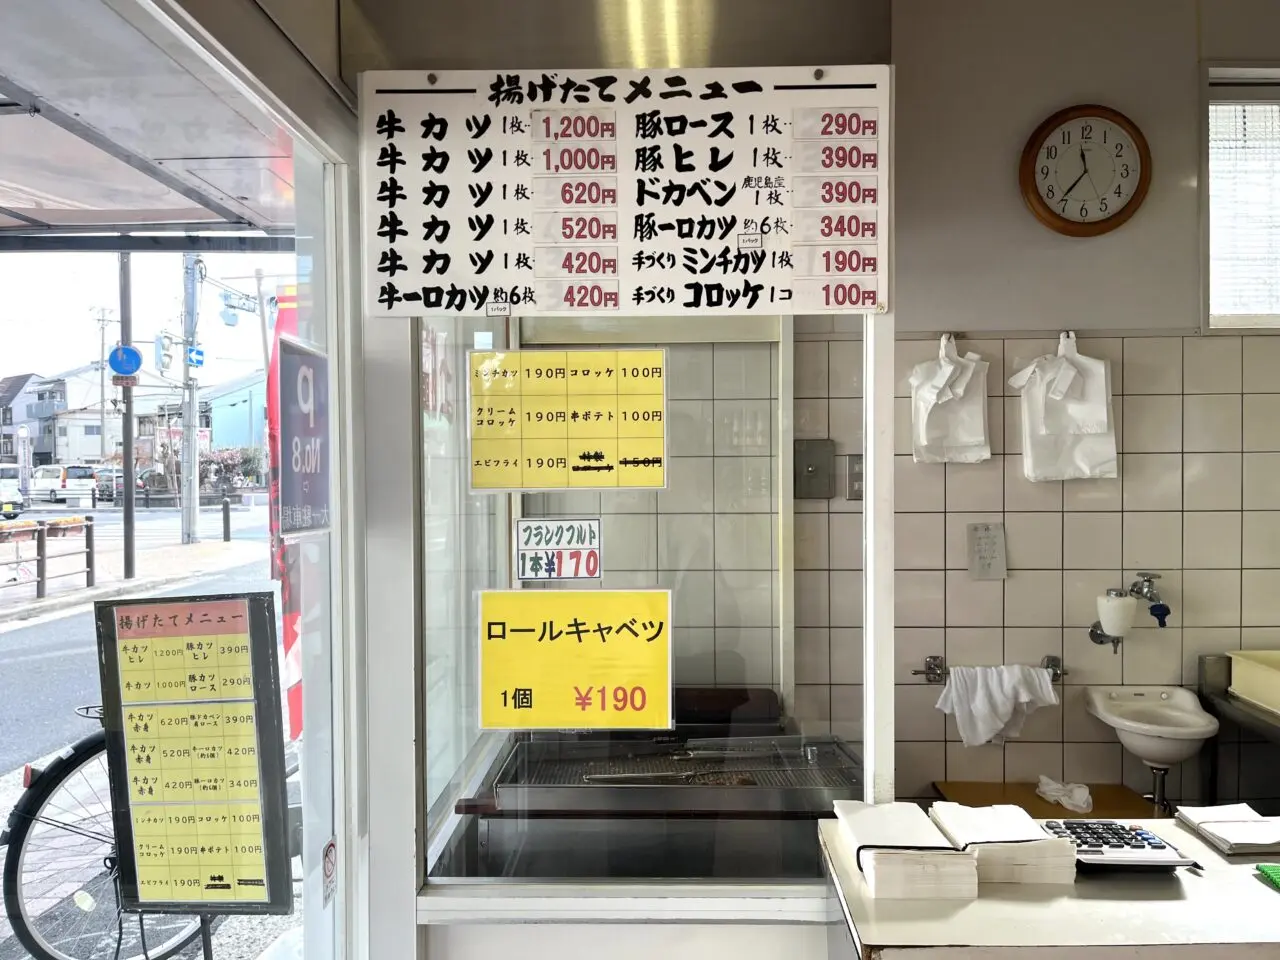 揚げたてメニュー
牛カツ 1枚 1,200円
牛カツ 1枚 1,000円
牛カツ 1枚 620円
牛カツ 1枚 520円
牛カツ 1枚 420円
牛一口カツ 約6枚 1パック 420円
豚ロース 1枚 290円
豚ヒレ 1枚 390円
ドカベン 鹿児島産 1枚 390円
豚一口カツ 約6枚 1パック 340円
手づくり ミンチカツ 1枚 190円
手づくり コロッケ 1コ 100円
ミンチカツ 190円 コロッケ 100円
クリームコロッケ 190円 串ポテト 100円
エビフライ 190円 150円
フランクフルト
1本¥170
ロールキャベツ
1個 ¥190
揚げたてメニュー
牛カツヒレ 1200円 豚カツヒレ 390円
牛カツ 1000円 豚カツロース 290円
牛カツ赤身 620円 豚ドカベン肩ロース 390円
牛カツ赤身 520円 牛一口カツ(約6個) 420円
牛カツ赤身 420円 豚一口カツ(約6個) 340円
ミンチカツ 190円 コロッケ 100円
クリームコロッケ 190円 串ポテト 100円
エビフライ 190円
P
No.8
12
1
2
3
4
5
6
7
8
9
10
11